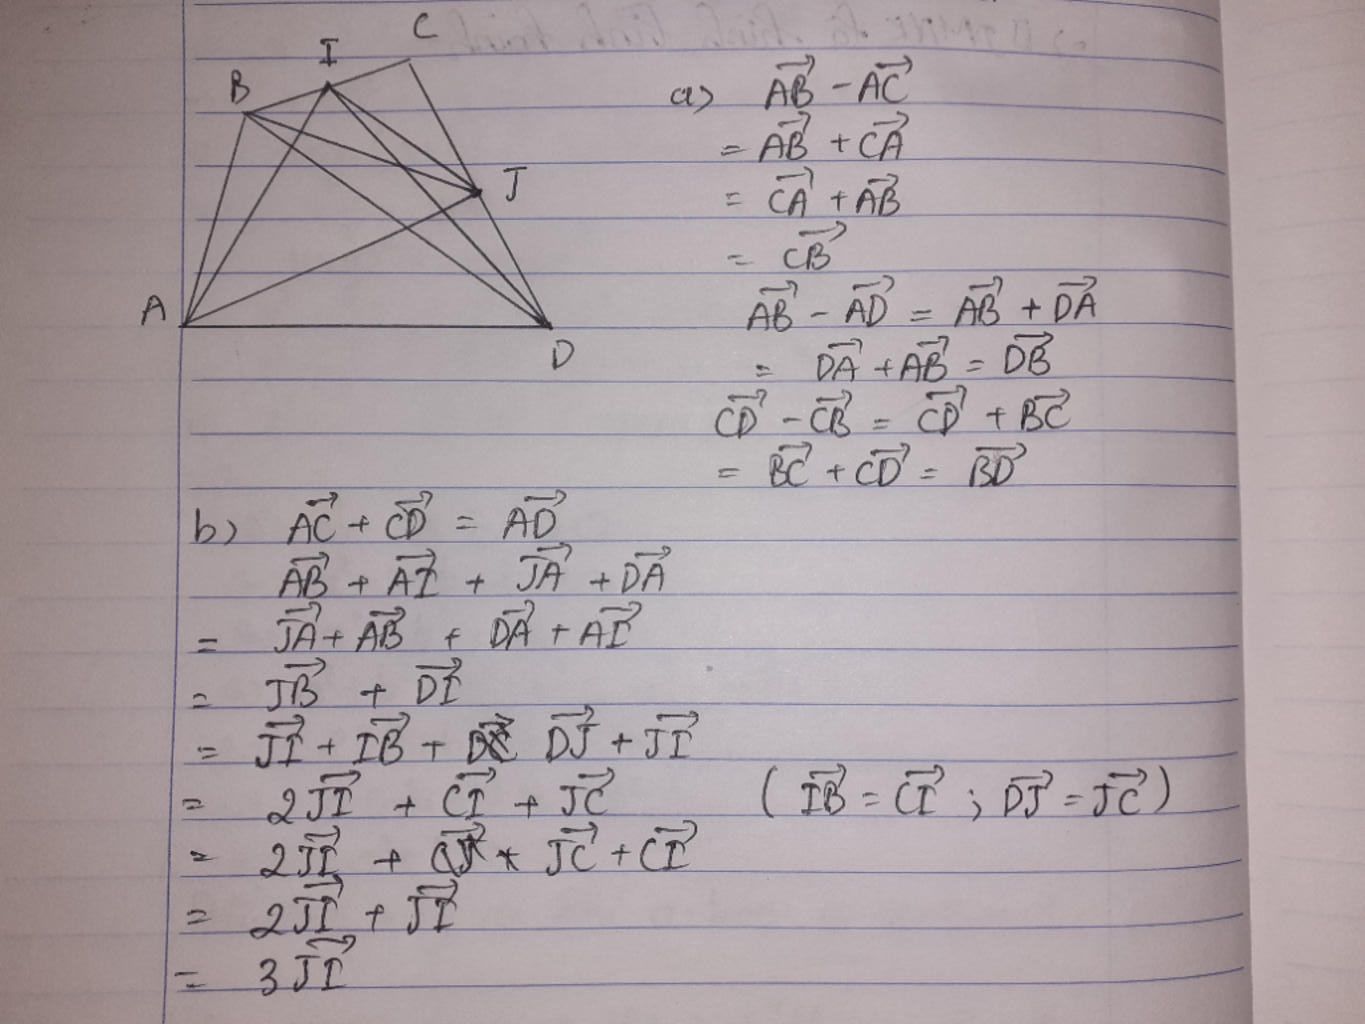 C
I
B
J
A
D
a) $\overrightarrow{AB} - \overrightarrow{AC}$
$= \overrightarrow{AB} + \overrightarrow{CA}$
$= \overrightarrow{CA} + \overrightarrow{AB}$
$= \overrightarrow{CB}$
$\overrightarrow{AB} - \overrightarrow{AD} = \overrightarrow{AB} + \overrightarrow{DA}$
$= \overrightarrow{DA} + \overrightarrow{AB} = \overrightarrow{DB}$
$\overrightarrow{CD} - \overrightarrow{CB} = \overrightarrow{CD} + \overrightarrow{BC}$
$= \overrightarrow{BC} + \overrightarrow{CD} = \overrightarrow{BD}$
b) $\overrightarrow{AC} + \overrightarrow{CD} = \overrightarrow{AD}$
$\overrightarrow{AB} + \overrightarrow{AI} + \overrightarrow{JA} + \overrightarrow{DA}$
$= \overrightarrow{JA} + \overrightarrow{AB} + \overrightarrow{DA} + \overrightarrow{AI}$
$= \overrightarrow{JB} + \overrightarrow{DI}$
$= \overrightarrow{JI} + \overrightarrow{IB} + \overrightarrow{DJ} + \overrightarrow{JI}$
$= 2\overrightarrow{JI} + \overrightarrow{CI} + \overrightarrow{JC}$ $(\overrightarrow{IB} = \overrightarrow{CI} ; \overrightarrow{DJ} = \overrightarrow{JC})$
$= 2\overrightarrow{JI} + \overrightarrow{JC} + \overrightarrow{CI}$
$= 2\overrightarrow{JI} + \overrightarrow{JI}$
$= 3\overrightarrow{JI}$